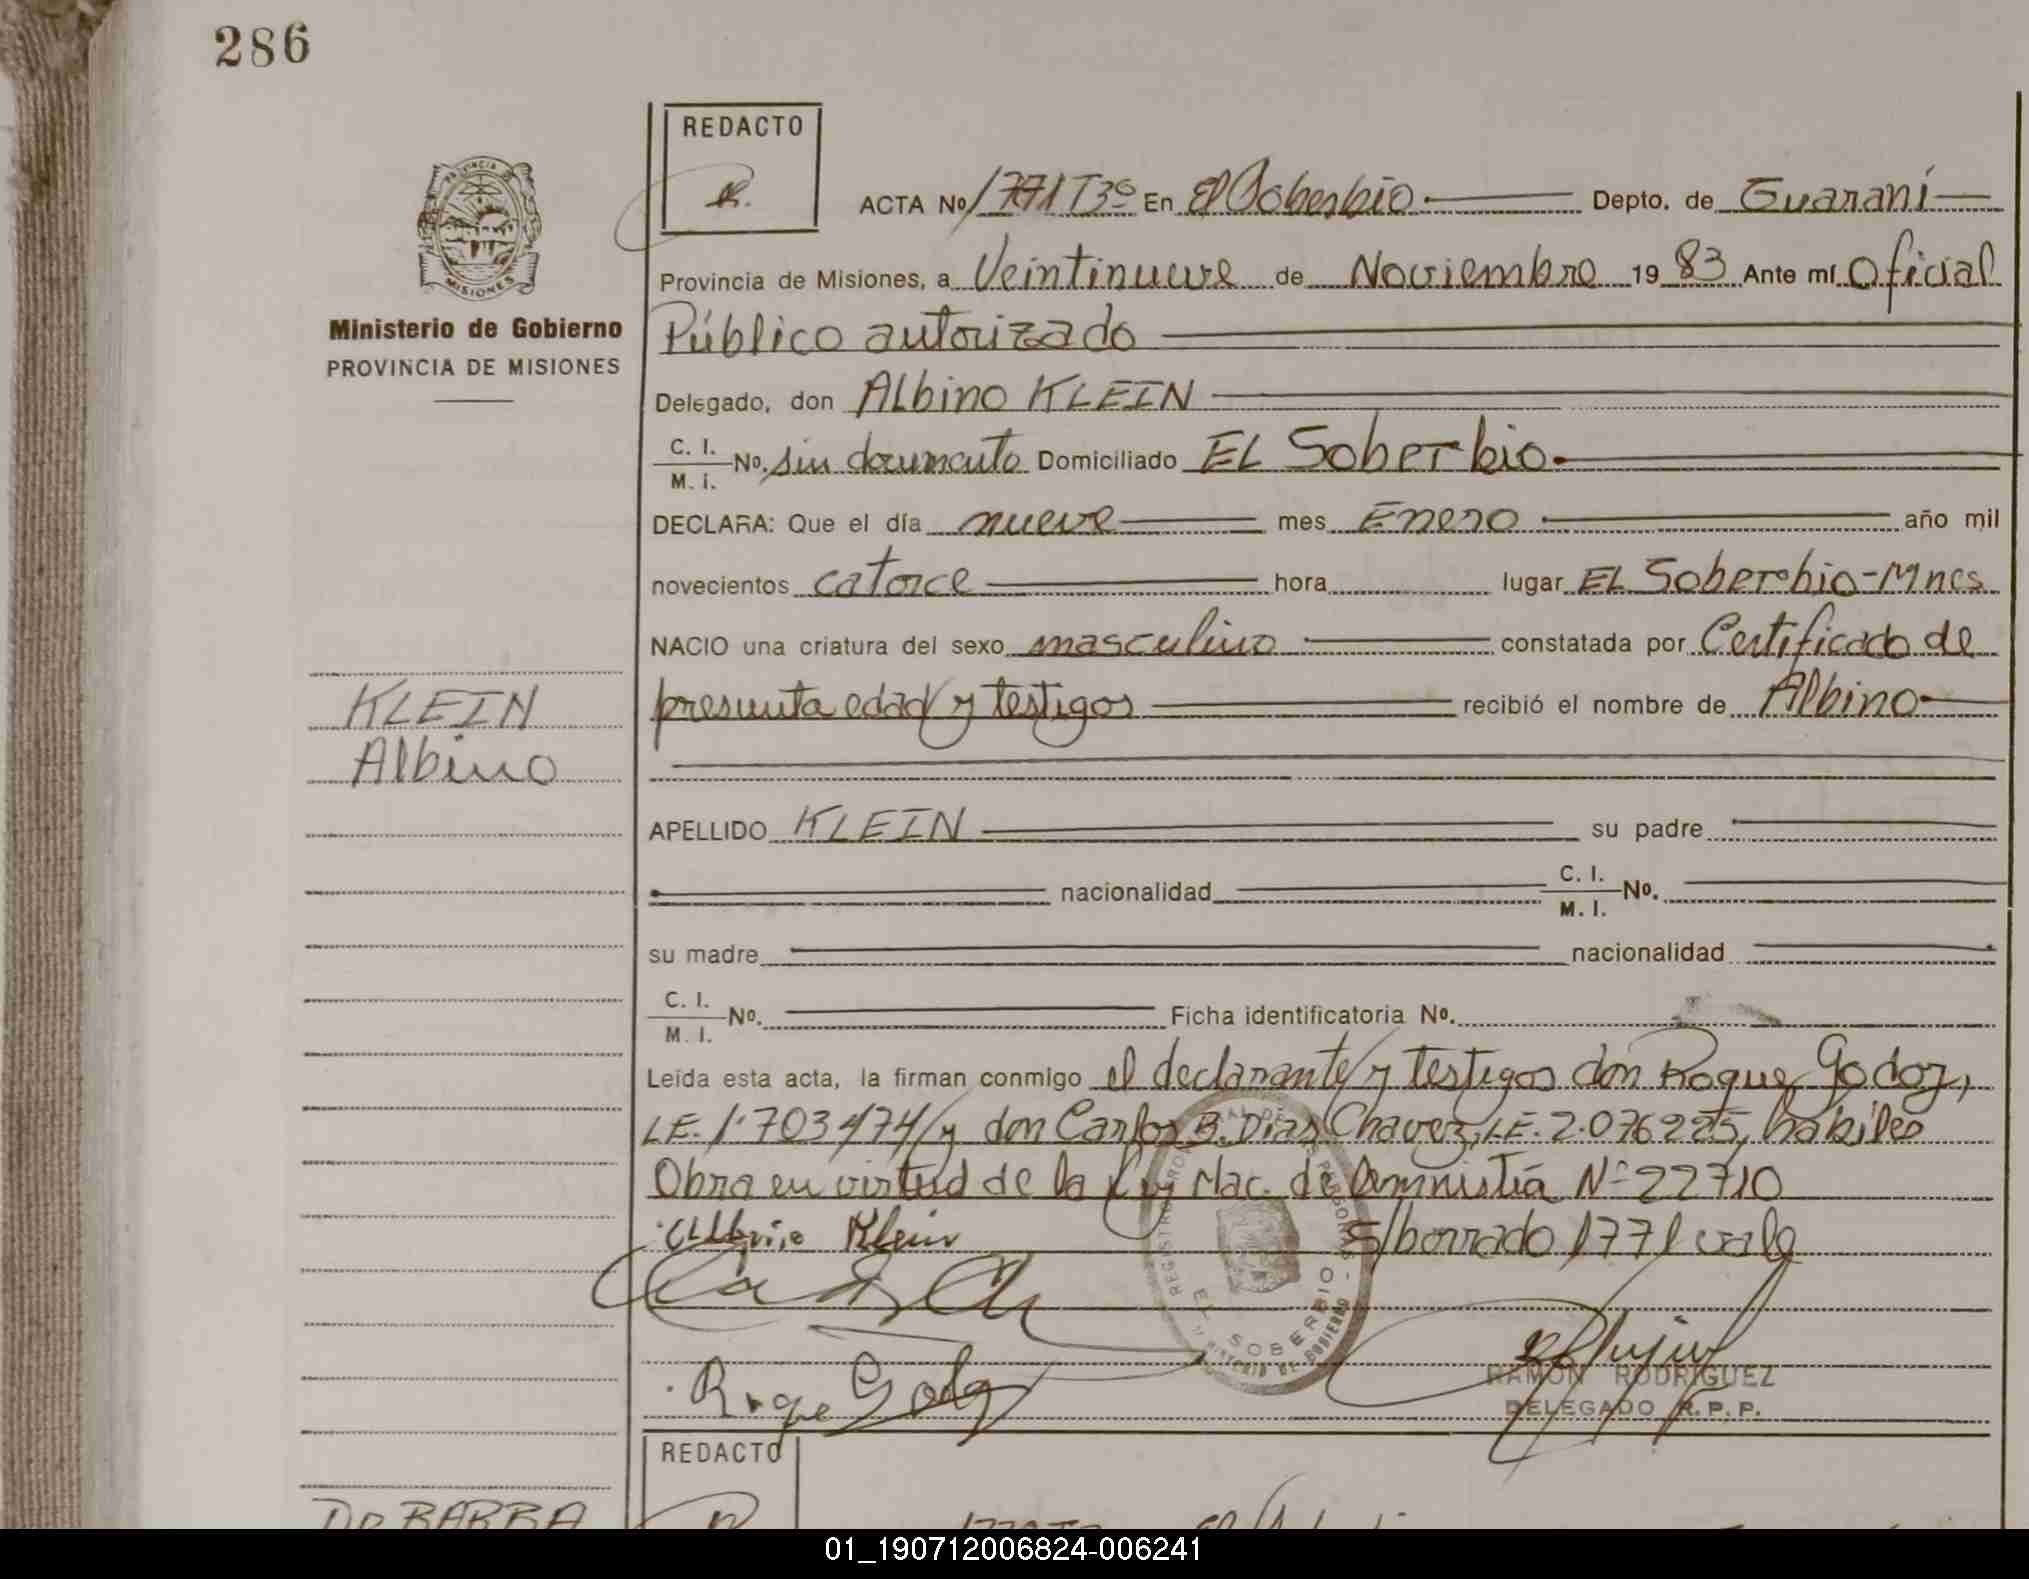 286
REDACTO
R.
ACTA No 1771 T3º En El Soberbio Depto. de Guaraní
Provincia de Misiones, a Veintinueve de Noviembre 19 83 Ante mí Oficial
Público autorizado
Delegado, don Albino KLEIN
C. I. / M. I. No. sin documento Domiciliado EL Soberbio.
DECLARA: Que el día nueve mes Enero año mil
novecientos catorce hora lugar EL Soberbio-Mnes
NACIO una criatura del sexo masculino constatada por Certificado de
presunta edad y testigos recibió el nombre de Albino
APELLIDO KLEIN su padre
nacionalidad C. I. / M. I. No.
su madre nacionalidad
C. I. / M. I. No. Ficha identificatoria No.
Leída esta acta, la firman conmigo el declarante y testigos don Roque Godoy,
L.E. 1.703474 y don Carlos B. Dias Chavez, L.E. 2.076225, hábiles
Obra en virtud de la Ley Nac. de Amnistía Nº 22710
Albino Klein S/borrado 1771 vale
Roque Godoy
REGISTRO PROVINCIAL DE LAS PERSONAS
EL SOBERBIO
MINISTERIO DE GOBIERNO
RAMON RODRIGUEZ
DELEGADO R.P.P.
PROVINCIA
MISIONES
Ministerio de Gobierno
PROVINCIA DE MISIONES
KLEIN
Albino
REDACTO
Da BARBA
01_190712006824-006241